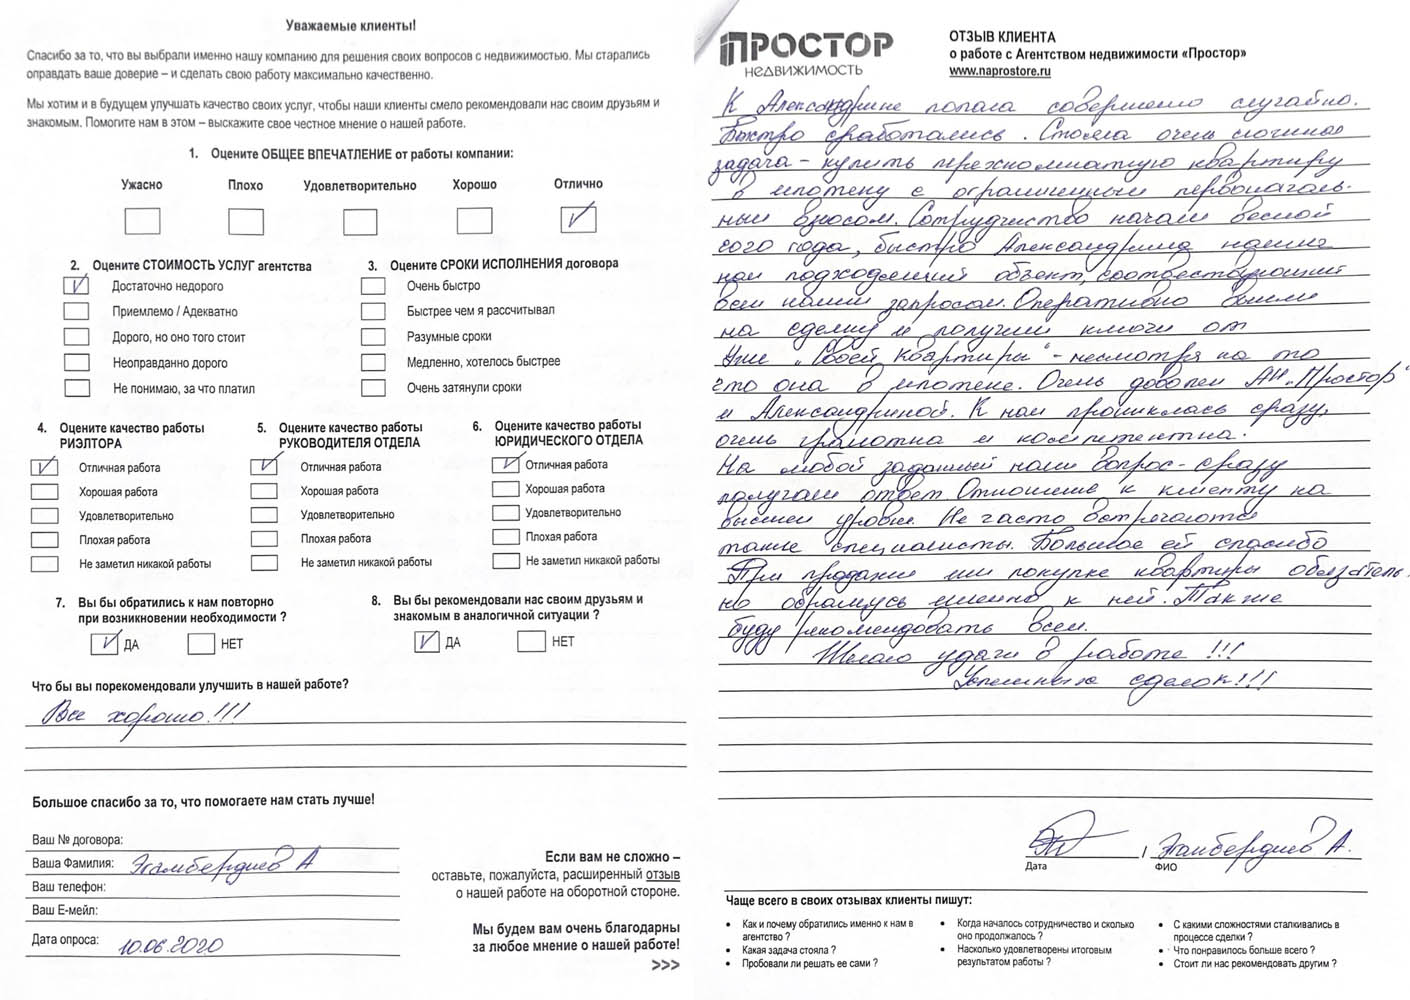 Уважаемые клиенты!
Спасибо за то, что вы выбрали именно нашу компанию для решения своих вопросов с недвижимостью. Мы старались
оправдать ваше доверие – и сделать свою работу максимально качественно.
Мы хотим и в будущем улучшать качество своих услуг, чтобы наши клиенты смело рекомендовали нас своим друзьям и
знакомым. Помогите нам в этом – выскажите свое честное мнение о нашей работе.
1. Оцените ОБЩЕЕ ВПЕЧАТЛЕНИЕ от работы компании:
Ужасно Плохо Удовлетворительно Хорошо Отлично
2. Оцените СТОИМОСТЬ УСЛУГ агентства
Достаточно недорого
Приемлемо / Адекватно
Дорого, но оно того стоит
Неоправданно дорого
Не понимаю, за что платил
3. Оцените СРОКИ ИСПОЛНЕНИЯ договора
Очень быстро
Быстрее чем я рассчитывал
Разумные сроки
Медленно, хотелось быстрее
Очень затянули сроки
4. Оцените качество работы
РИЭЛТОРА
Отличная работа
Хорошая работа
Удовлетворительно
Плохая работа
Не заметил никакой работы
5. Оцените качество работы
РУКОВОДИТЕЛЯ ОТДЕЛА
Отличная работа
Хорошая работа
Удовлетворительно
Плохая работа
Не заметил никакой работы
6. Оцените качество работы
ЮРИДИЧЕСКОГО ОТДЕЛА
Отличная работа
Хорошая работа
Удовлетворительно
Плохая работа
Не заметил никакой работы
7. Вы бы обратились к нам повторно
при возникновении необходимости ?
ДА НЕТ
8. Вы бы рекомендовали нас своим друзьям и
знакомым в аналогичной ситуации ?
ДА НЕТ
Что бы вы порекомендовали улучшить в нашей работе?
Все хорошо!!!
Большое спасибо за то, что помогаете нам стать лучше!
Ваш № договора:
Ваша Фамилия: Эгамбердиев А
Ваш телефон:
Ваш Е-мейл:
Дата опроса: 10.06.2020
Если вам не сложно –
оставьте, пожалуйста, расширенный отзыв
о нашей работе на оборотной стороне.
Мы будем вам очень благодарны
за любое мнение о нашей работе!
>>>
ПРОСТОР
НЕДВИЖИМОСТЬ
ОТЗЫВ КЛИЕНТА
о работе с Агентством недвижимости «Простор»
www.naprostore.ru
К Александрине попала совершено случайно.
Быстро сработались. Стояла очень сложная
задача - купить трехкомнатную квартиру
в ипотеку с ограниченным первоначаль-
ным взносом. Сотрудничество начали весной
сего года, быстро Александрина нашла
нам подходящий объект, соответствующий
всем нашим запросам. Оперативно вышли
на сделку и получили ключи от
уже "Своей квартиры" - несмотря на то
что она в ипотеке. Очень доволен АН "Простор"
и Александриной. К нам прониклась сразу,
очень грамотна и компетентна.
На любой заданный нами вопрос - сразу
получали ответ. Отношение к клиенту на
высшем уровне. Не часто встречаются
такие специалисты. Большое ей спасибо
При продаже или покупке квартиры обязатель-
но обращусь именно к ней. Также
буду рекомендовать всем.
Желаю удачи в работе!!!
Успешных сделок!!!
/ Эгамбердиев А.
Дата ФИО
Чаще всего в своих отзывах клиенты пишут:
• Как и почему обратились именно к нам в
агентство ?
• Какая задача стояла ?
• Пробовали ли решать ее сами ?
• Когда началось сотрудничество и сколько
оно продолжалось ?
• Насколько удовлетворены итоговым
результатом работы ?
• С какими сложностями сталкивались в
процессе сделки ?
• Что понравилось больше всего ?
• Стоит ли нас рекомендовать другим ?